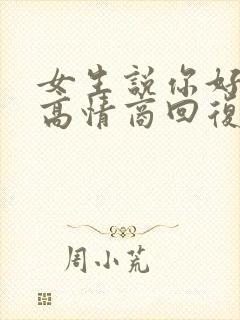 女生說你好
高情商回復
周小荒